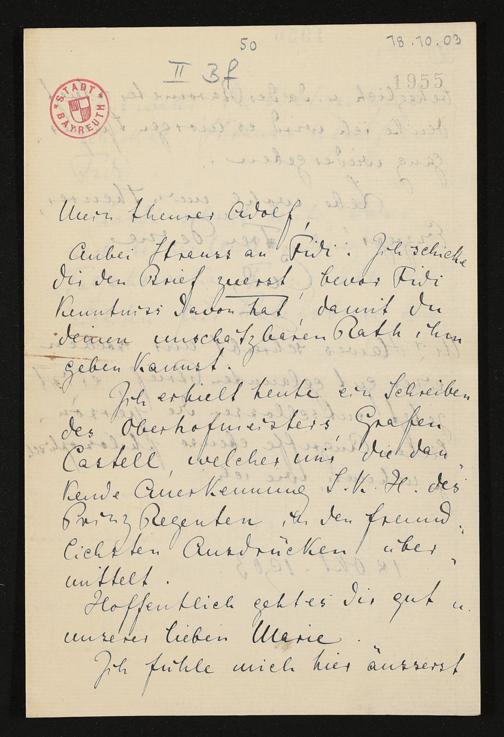 50
18.10.03
II Bf
1955
STADT BAYREUTH
Mein theurer Adolf,
Anbei Strauss an Fidi. Ich schicke
dir den Brief zuerst, bevor Fidi
Kenntniss davon hat, damit du
deinen unschätzbaren Rath ihm
geben kannst.
Ich erhielt heute ein Schreiben
des Oberhofmeisters, Grafen
Castell, welcher mir die dan-
kende Anerkennung S. K. H. des
Prinz Regenten in den freund-
lichsten Ausdrücken über-
mittelt.
Hoffentlich geht es dir gut u.
unserer lieben Marie.
Ich fühle mich hier äusserst